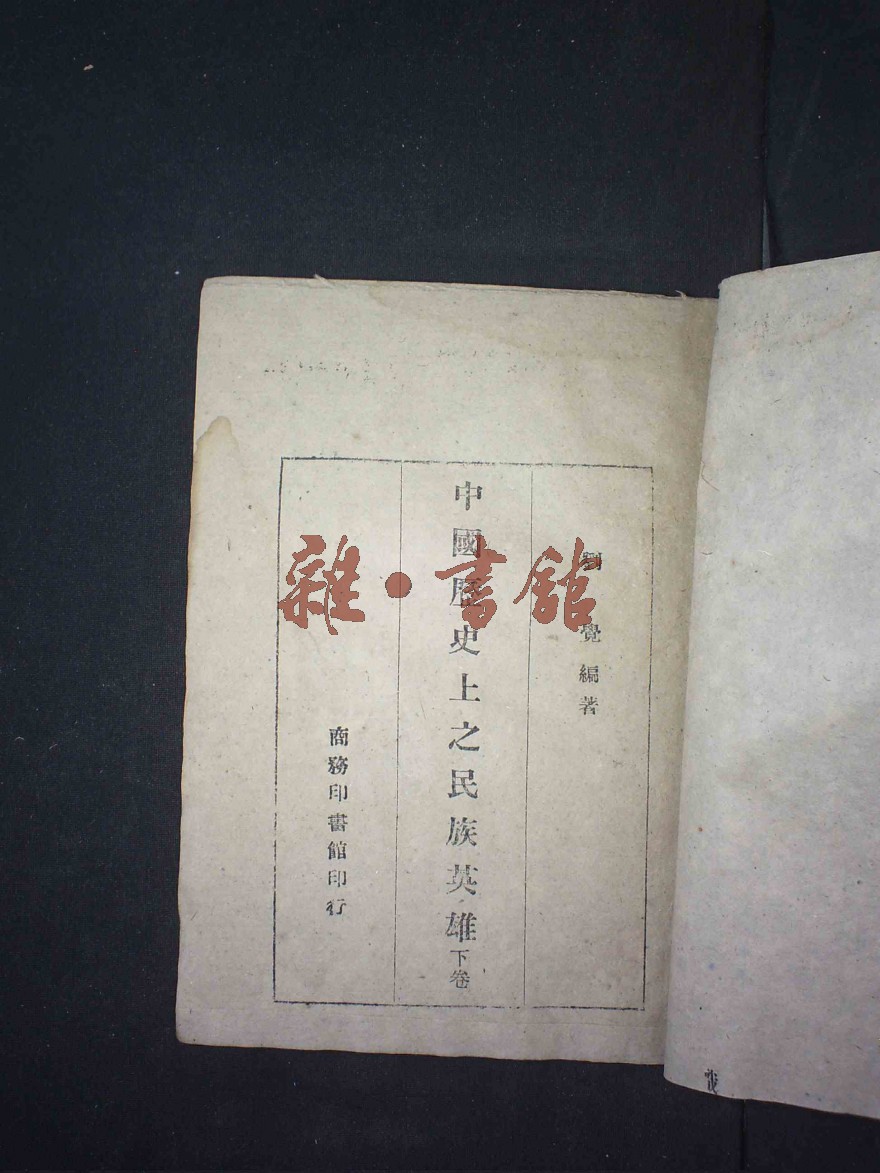 覺編著
中國歷史上之民族英雄下卷
商務印書館印行
雜·書館